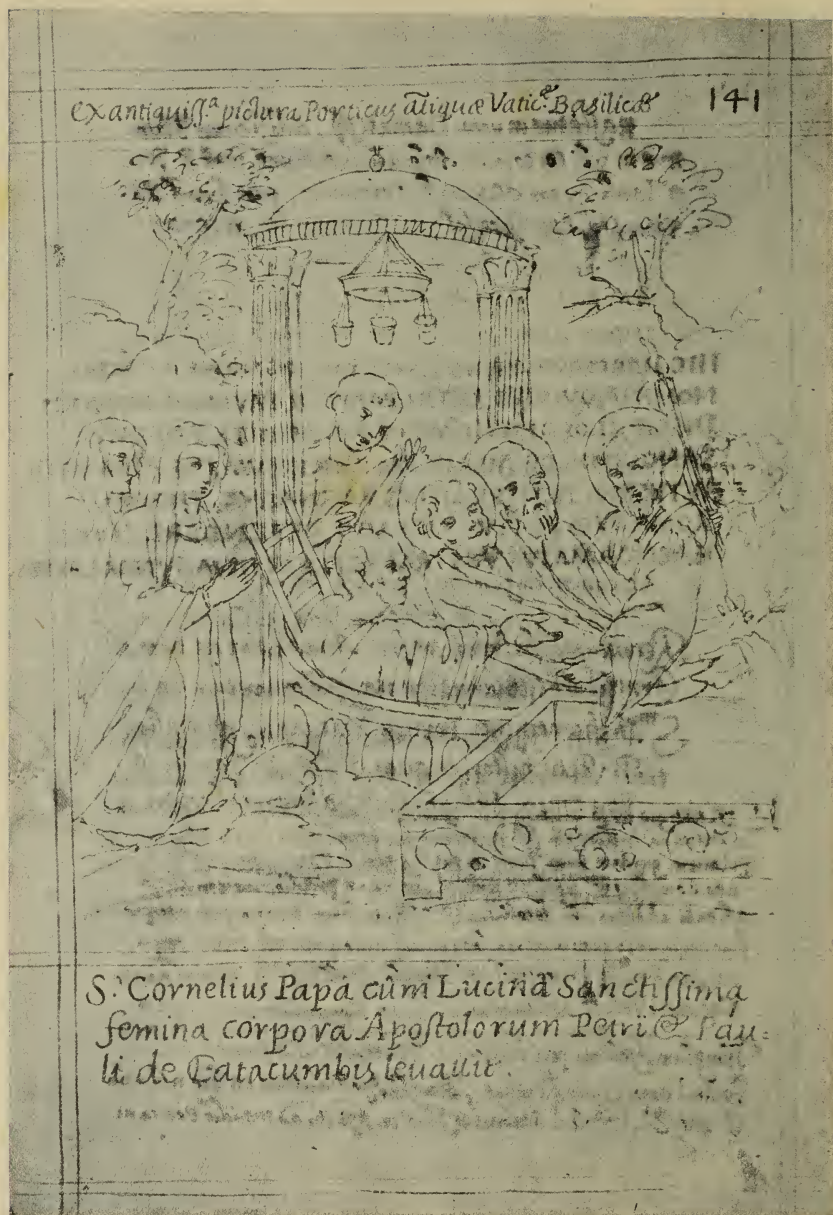 Ex antiquiss.ª pictura Porticus ãtiquæ Vatic.æ Basilicæ 141
S. Cornelius Papa cum Lucina Sanctissima
femina corpora Apostolorum Petri & Pau-
li de Catacumbis leuauit.